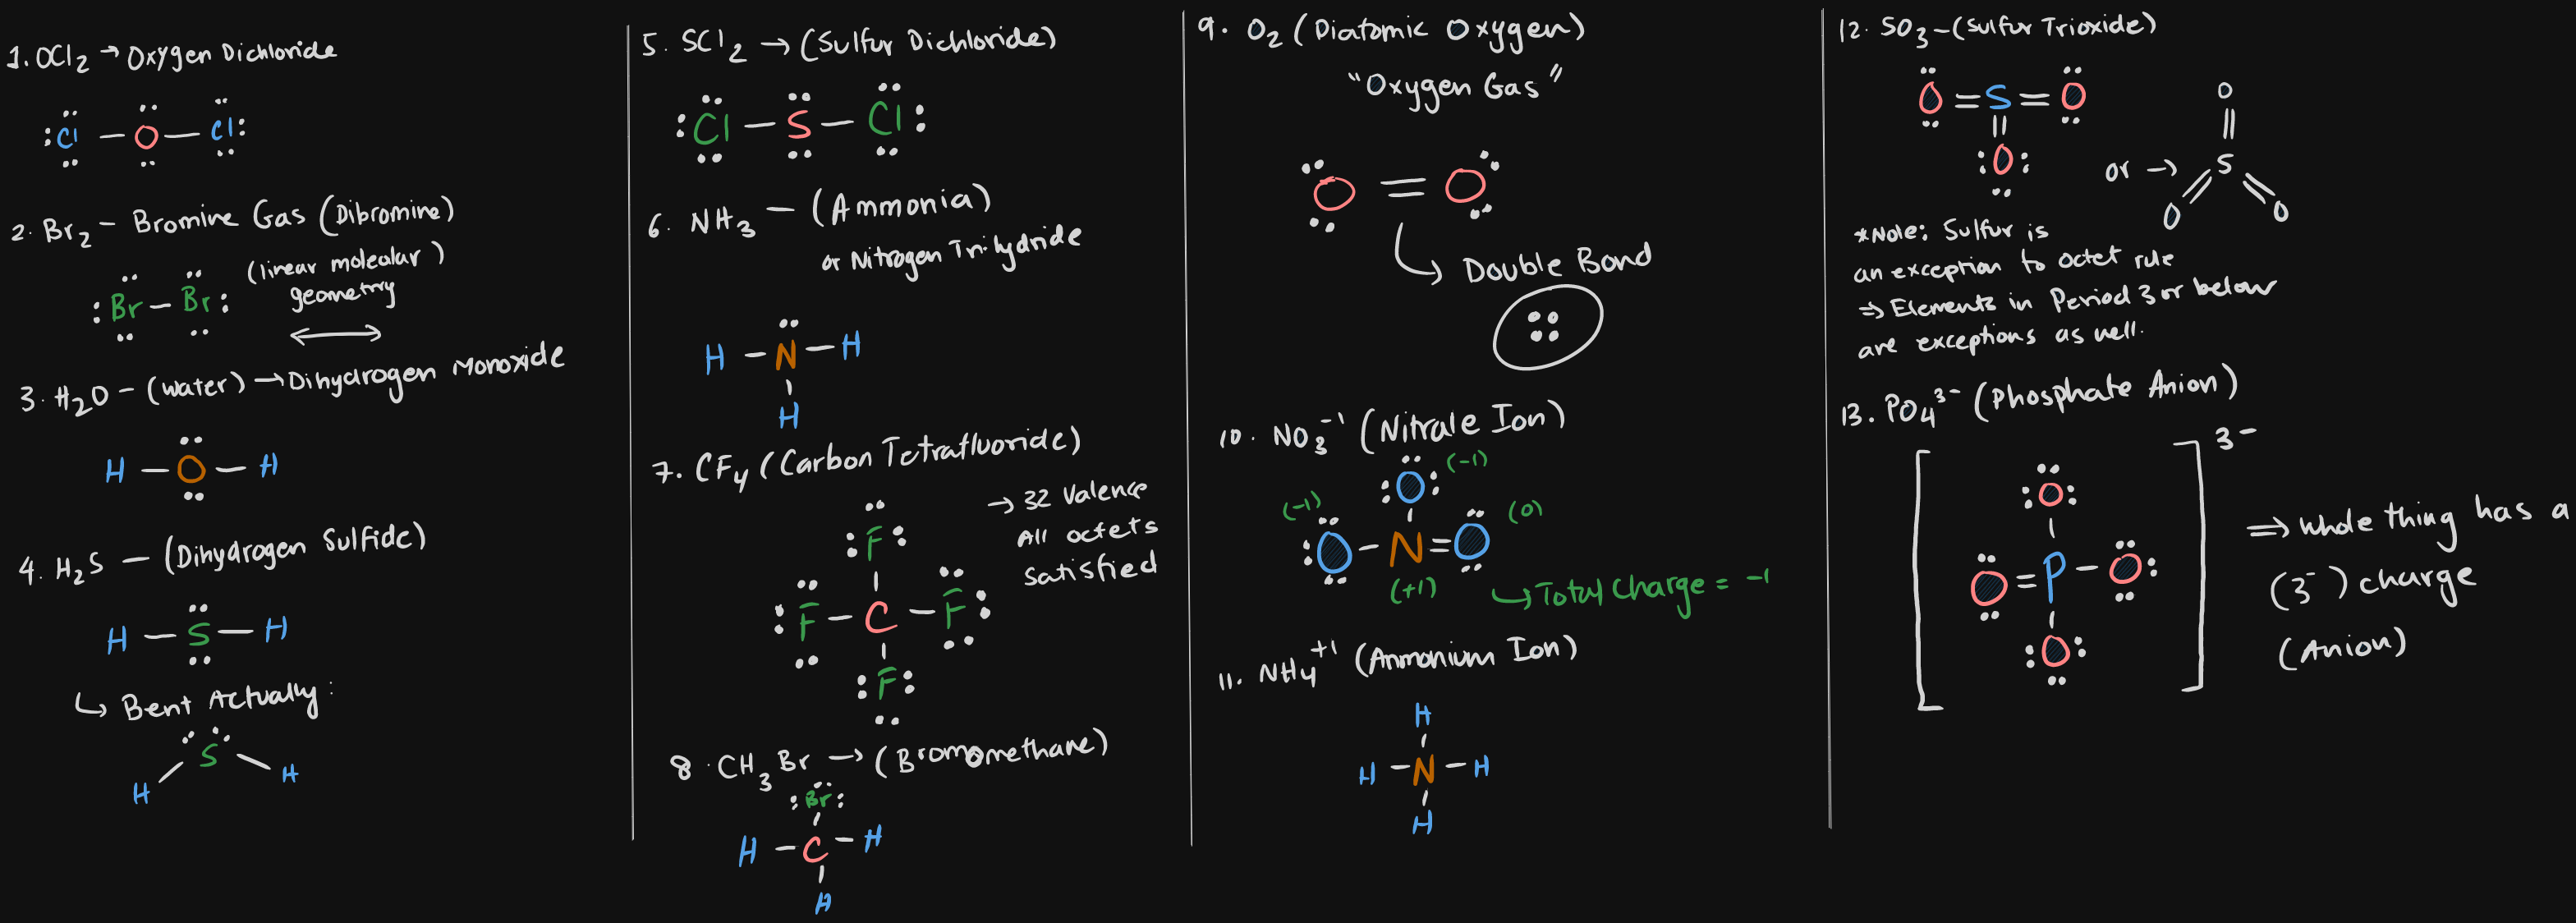 1. OCl2 → Oxygen Dichloride
:Cl — O — Cl:
2. Br2 – Bromine Gas (Dibromine)
:Br – Br:
(linear molecular)
geometry
3. H2O – (Water) → Dihydrogen Monoxide
H — O — H
4. H2S — (Dihydrogen Sulfide)
H — S — H
↳ Bent Actually:
S
H H
5. SCl2 → (Sulfur Dichloride)
:Cl — S — Cl:
6. NH3 — (Ammonia)
or Nitrogen Trihydride
H — N — H
H
7. CF4 (Carbon Tetrafluoride)
→ 32 Valence
All octets
satisfied
:F:
:F — C — F:
:F:
8. CH3Br → (Bromomethane)
:Br:
H — C — H
H
9. O2 (Diatomic Oxygen)
"Oxygen Gas"
O = O
↳ Double Bond
::
10. NO3⁻¹ (Nitrate Ion)
:O: (-1)
(-1) (0)
:O — N = O
(+1)
↳ Total Charge = -1
11. NH4⁺¹ (Ammonium Ion)
H
H — N — H
H
12. SO3 – (Sulfur Trioxide)
O = S = O
:O:
or →
O
S
O O
*Note: Sulfur is
an exception to octet rule
⇒ Elements in Period 3 or below
are exceptions as well.
13. PO4³⁻ (Phosphate Anion)
3-
:O:
O = P — O:
:O:
⇒ Whole thing has a
(3⁻) charge
(Anion)